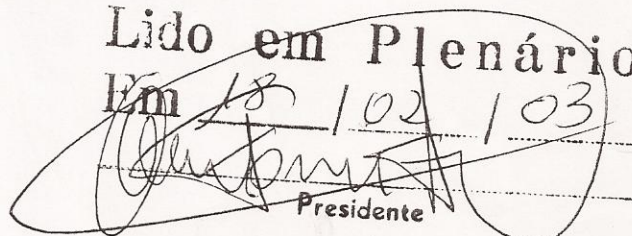 Lido em Plenário
Em 18 / 02 / 03
Presidente